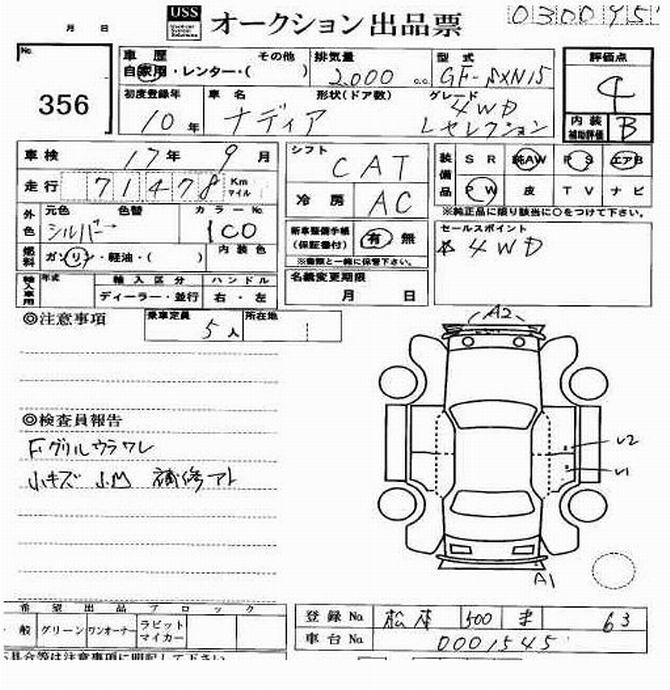 月 日 USS オークション出品票 0300951
Used car System Solutions
No. 356
車歴 自家用・レンター・( ) その他
排気量 2000 c.c.
型式 GF-SXN15
評価点 4
内装補助評価 B
初度登録年 10年
車名 ナディア
形状(ドア数)
グレード 4WD Lセレクション
車検 17年 9月
走行 71478 Km マイル
シフト CAT
冷房 AC
装備品 SR 純AW PS エアB
PW 皮 TV ナビ
※純正品に限り該当に○をつけて下さい。
外色 元色 シルバー 色替 カラーNo. 1C0
燃料 ガソリン・軽油・( ) 内装色
新車整備手帳(保証書付) 有 無
※書類と一緒に保管下さい。
セールスポイント
4WD
輸入車用 年式 輸入区分 ディーラー・並行 ハンドル 右・左
名義変更期限 月 日
◎注意事項
乗車定員 5人 所在地
A2
◎検査員報告
Fグリルウラワレ
小キズ 小凹 補修アト
U2
U1
A1
希望出品ブロック
一般 グリーン ワンオーナー ラビットマイカー
登録No 松本 500 ま 63
車台No 0001545
具合等は注意事項に明記して下さい。